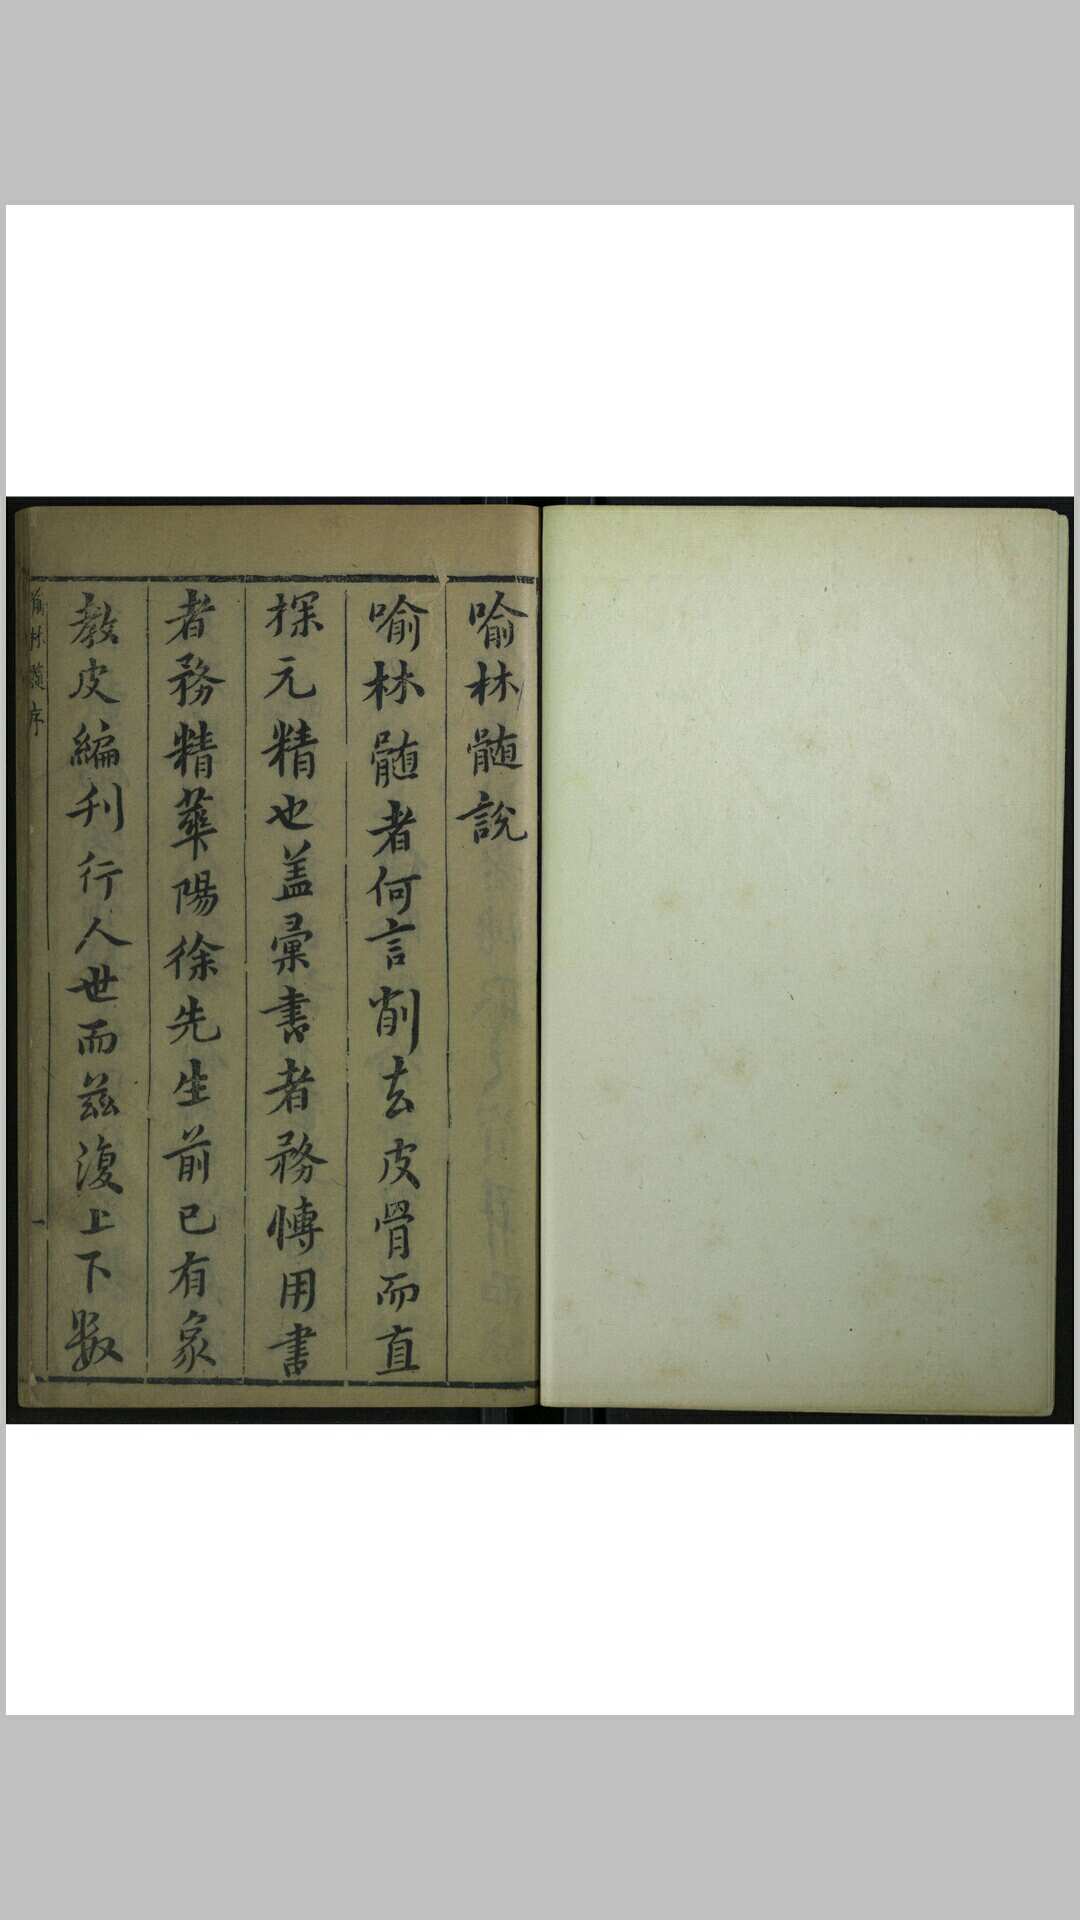 喻林髄說
喻林髄者何言削去皮骨而直
探元精也盖彙書者務愽用書
者務精華陽徐先生前已有象
教皮編刋行人世而兹復上下數
喻林髓序
一